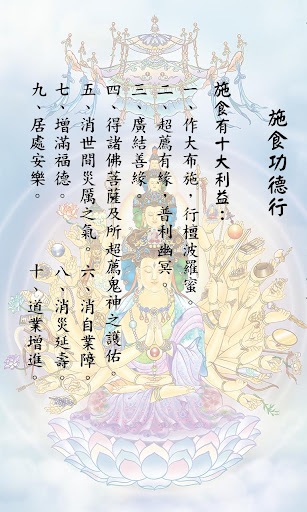 施食功德行
施食有十大利益：
一、作大布施，行檀波羅蜜。
二、超薦有緣，普利幽冥。
三、廣結善緣。
四、得諸佛菩薩及所超薦鬼神之護佑。
五、消世間災厲之氣。
六、消自業障。
七、增滿福德。
八、消災延壽。
九、居處安樂。
十、道業增進。